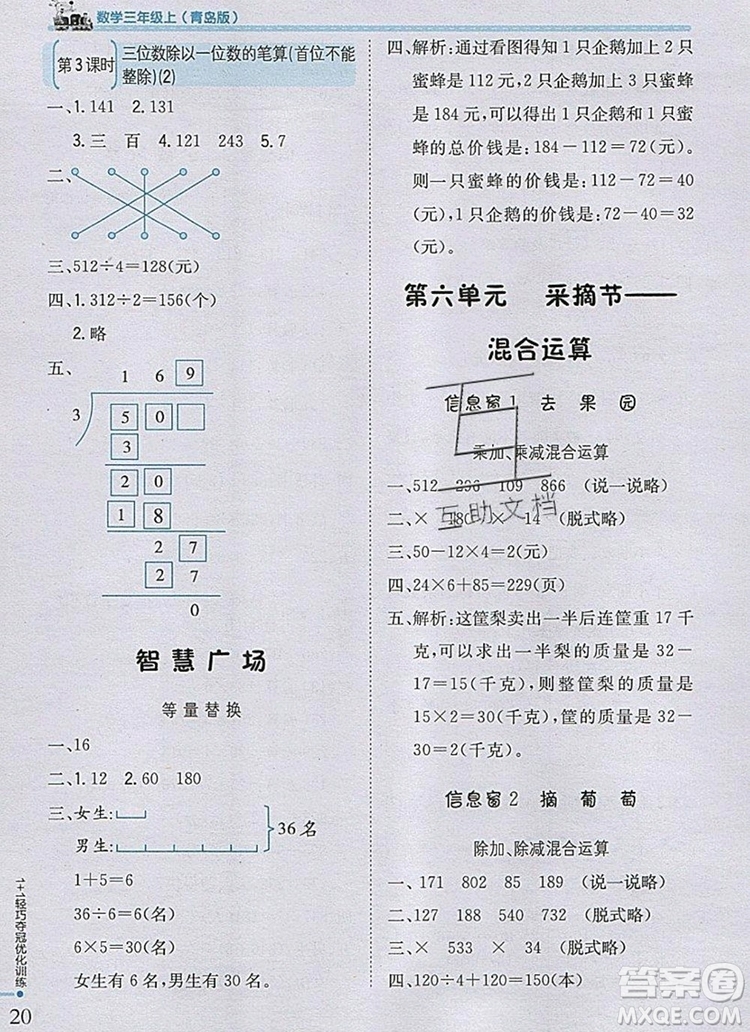 数学三年级上(青岛版)
第3课时
三位数除以一位数的笔算(首位不能
整除)(2)
一、1.141 2.131
3.三 百 4.121 243 5.7
二、
三、512÷4=128(元)
四、1.312÷2=156(个)
2.略
五、
1 6 9
3 5 0
3
2 0
1 8
2 7
2 7
0
智慧广场
等量替换
一、16
二、1.12 2.60 180
三、女生:
男生:
36名
1+5=6
36÷6=6(名)
6×5=30(名)
女生有6名,男生有30名。
1+1轻巧夺冠优化训练
20
四、解析:通过看图得出1只企鹅与2只
蜜蜂是112元,2只企鹅与2只蜜
蜂是184元,可以得出1只企鹅1只蜜
蜂的总价钱是:184-112=72(元)。
则一只蜜蜂的价钱是:112-72=40
(元),1只企鹅的价钱是:72-40=32
(元)。
第六单元 采摘节——
混合运算
信息窗1 去果园
乘加、乘减混合运算
一、512 296 109 866 (说一说略)
二、× 180 × 14 (脱式略)
三、50-12×4=2(元)
四、24×6+85=229(页)
五、解析:求这筐梨卖出一半后连筐重17千
克,可以求出一半梨的质量是32-
17=15(千克),则整筐梨的质量是
15×2=30(千克),筐的质量是32-
30=2(千克)。
信息窗2 摘葡萄
除加、除减混合运算
一、171 802 85 189 (说一说略)
二、127 188 540 732 (脱式略)
三、× 533 × × (脱式略)
四、120÷4+120=150(本)
互助文档
答案圈
MXQE.COM